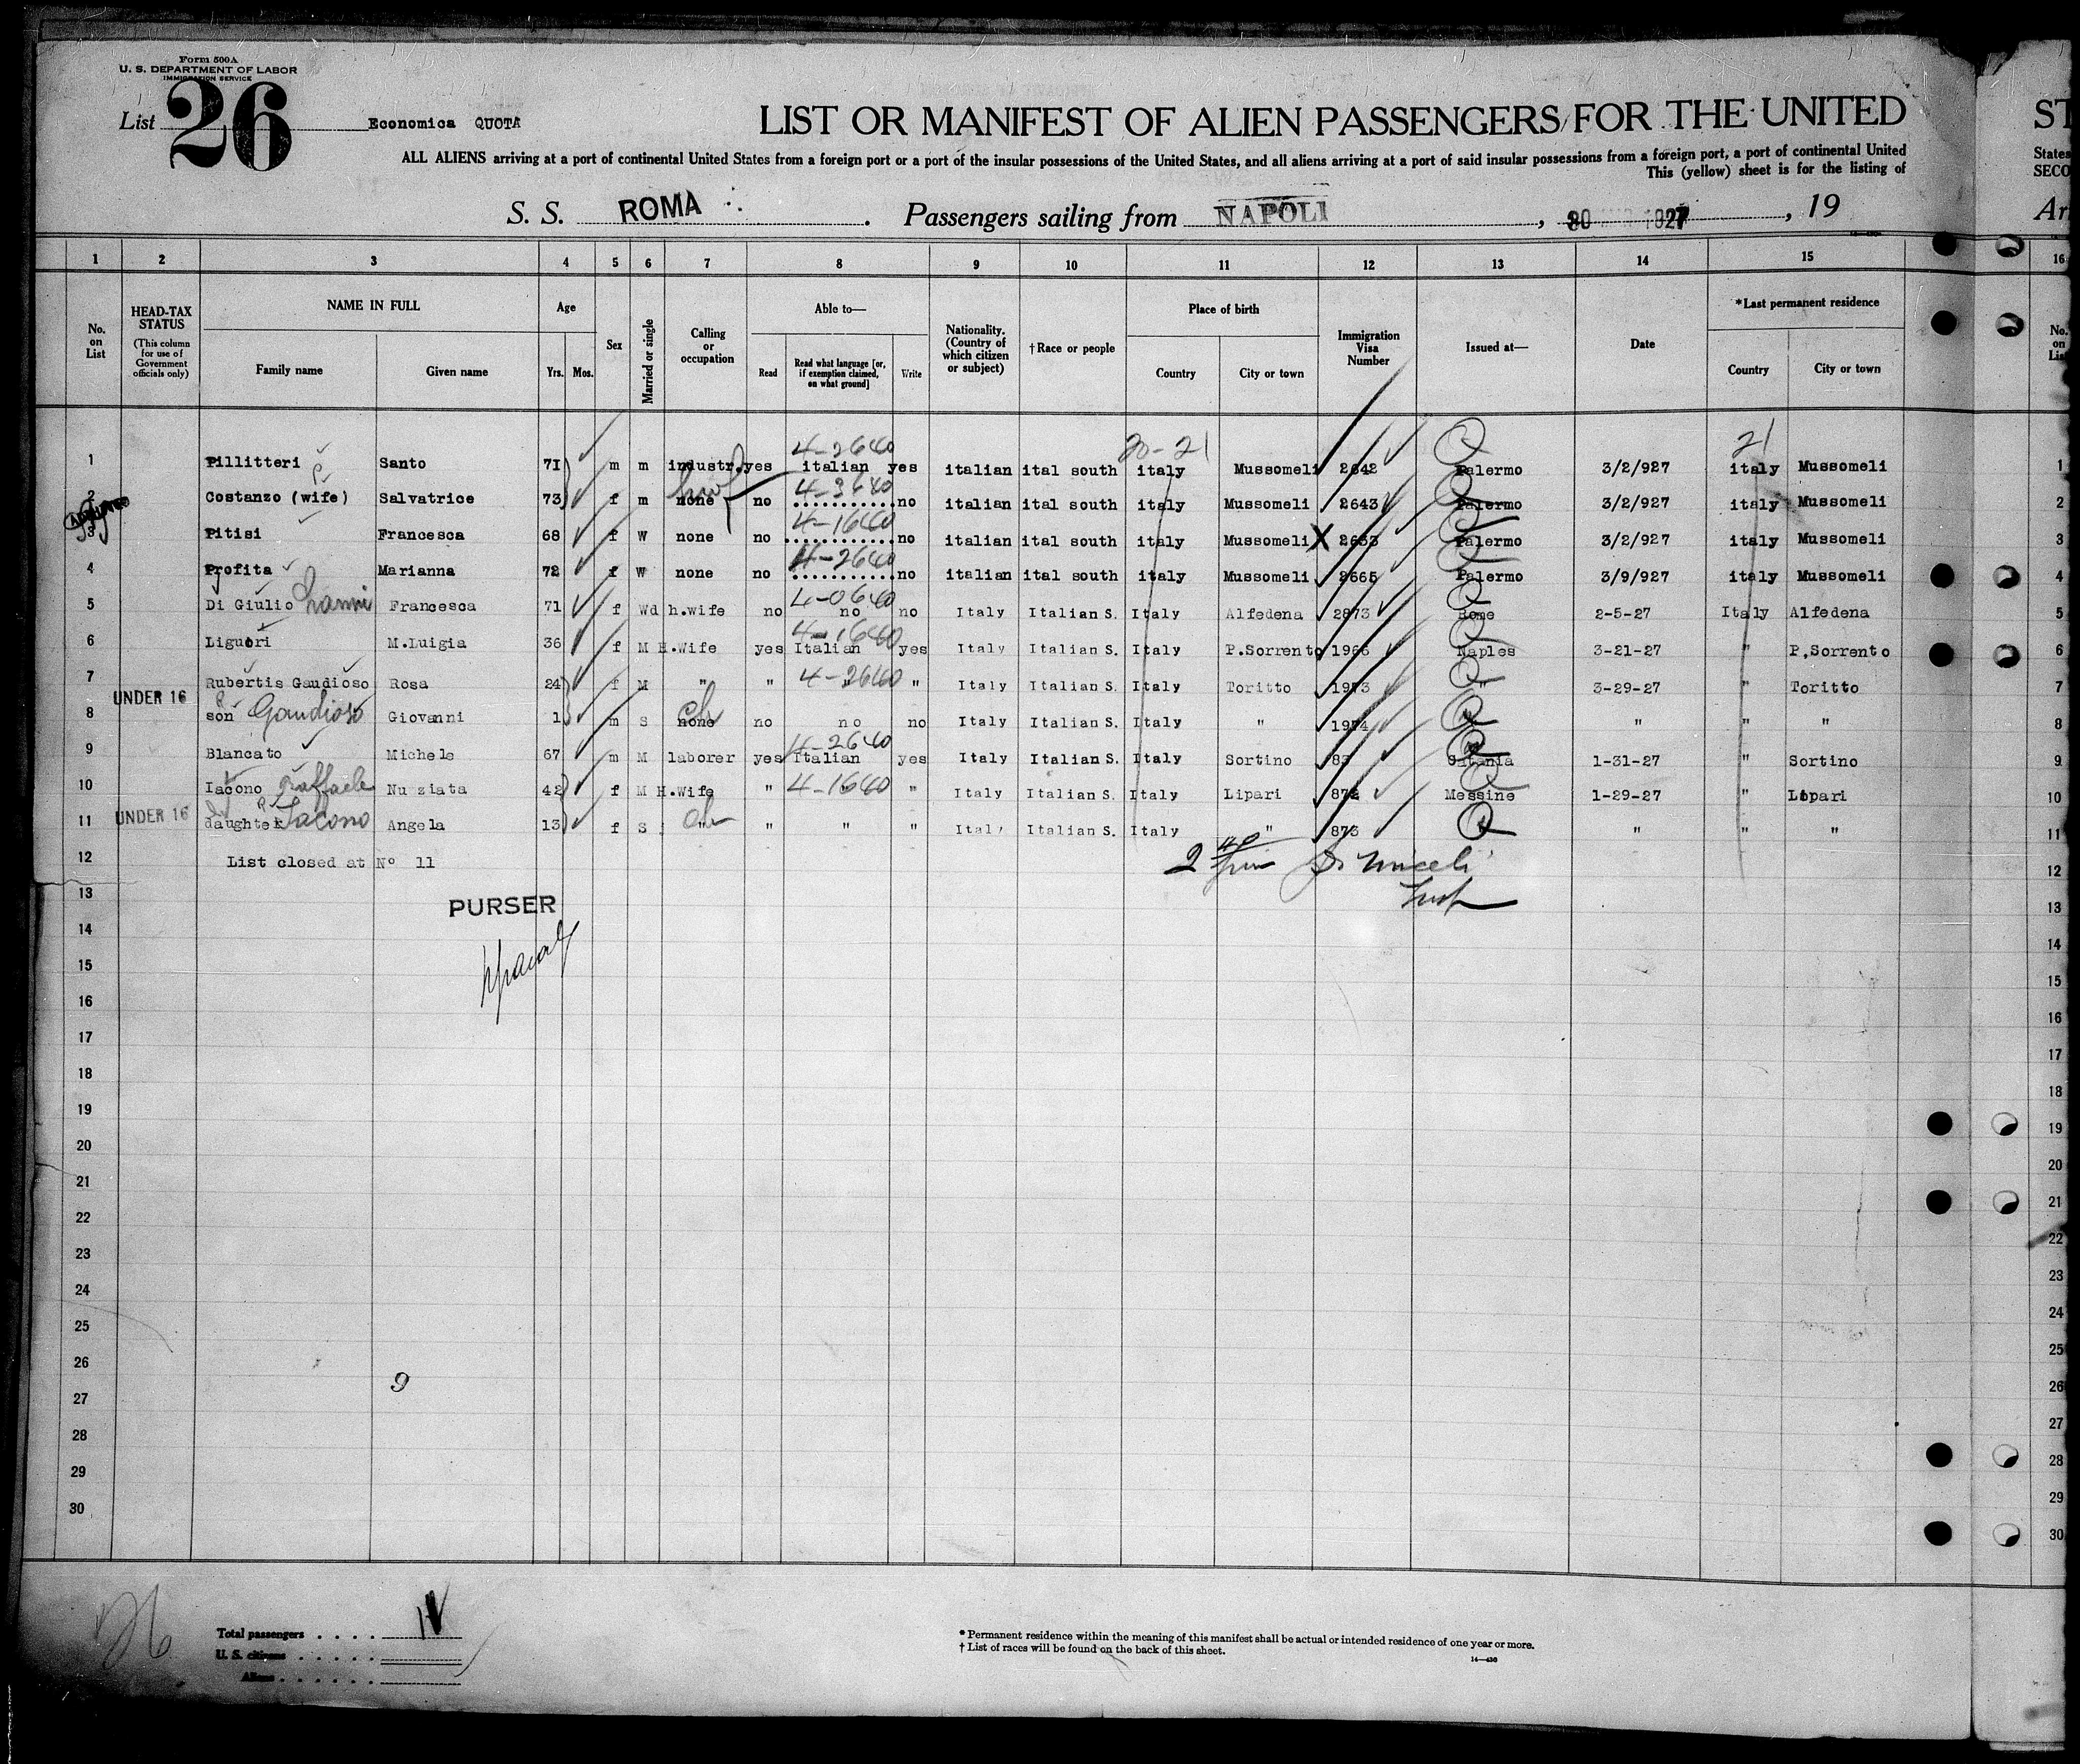 Form 500A
U. S. DEPARTMENT OF LABOR
IMMIGRATION SERVICE
List 26 Economica QUOTA
LIST OR MANIFEST OF ALIEN PASSENGERS FOR THE UNITED ST
ALL ALIENS arriving at a port of continental United States from a foreign port or a port of the insular possessions of the United States, and all aliens arriving at a port of said insular possessions from a foreign port, a port of continental United States
This (yellow) sheet is for the listing of SECO
S. S. ROMA . Passengers sailing from NAPOLI , 1927 , 19 Ar
1 2 3 4 5 6 7 8 9 10 11 12 13 14 15 16
No. on List HEAD-TAX STATUS (This column for use of Government officials only) NAME IN FULL Family name Given name Age Yrs. Mos. Sex Married or single Calling or occupation Able to— Read Read what language [or, if exemption claimed, on what ground] Write Nationality. (Country of which citizen or subject) †Race or people Place of birth Country City or town Immigration Visa Number Issued at— Date *Last permanent residence Country City or town No. on List
4-2640 20-21 21
1 Pillitteri Santo 71 m m industr. yes italian yes italian ital south italy Mussomeli 2642 Palermo 3/2/927 italy Mussomeli 1
4-3640
2 Costanzo (wife) Salvatrice 73 f m none no no italian ital south italy Mussomeli 2643 Palermo 3/2/927 italy Mussomeli 2
4-1640
3 Pitisi Francesca 68 f W none no no italian ital south italy Mussomeli X 2653 Palermo 3/2/927 italy Mussomeli 3
4-2640
4 Profita Marianna 72 f W none no no italian ital south italy Mussomeli 2665 Palermo 3/9/927 italy Mussomeli 4
4-0640
5 Di Giulio Francesca 71 f Wd h.wife no no no Italy Italian S. Italy Alfedena 2873 Rome 2-5-27 Italy Alfedena 5
4-1640
6 Liguori M.Luigia 36 f M H.Wife yes Italian yes Italy Italian S. Italy P.Sorrento 1966 Naples 3-21-27 " P.Sorrento 6
4-2640
7 Rubertis Gaudioso Rosa 24 f M " " " " Italy Italian S. Italy Toritto 1973 " 3-29-27 " Toritto 7
UNDER 16
8 son Gaudioso Giovanni 1 m s none ch no no no Italy Italian S. Italy " 1974 " " " " 8
4-2640
9 Blancato Michele 67 m M laborer yes Italian yes Italy Italian S. Italy Sortino 83 Catania 1-31-27 " Sortino 9
10 Iacono Raffaele Nu ziata 42 f M H.Wife " 4-1640 " " Italy Italian S. Italy Lipari 872 Messine 1-29-27 " Lipari 10
UNDER 16
11 daughter Iacono Angela 13 f S " ch " " " Italy Italian S. Italy " 873 " " " 11
12 List closed at Nº 11 2 12
13 PURSER 13
14 14
15 15
16 16
17 17
18 18
19 19
20 20
21 21
22 22
23 23
24 24
25 25
26 26
27 9 27
28 28
29 29
30 30
26
Total passengers . . . . 11
U. S. citizens . . . . .
Aliens . . . . . .
* Permanent residence within the meaning of this manifest shall be actual or intended residence of one year or more.
† List of races will be found on the back of this sheet.
14—430